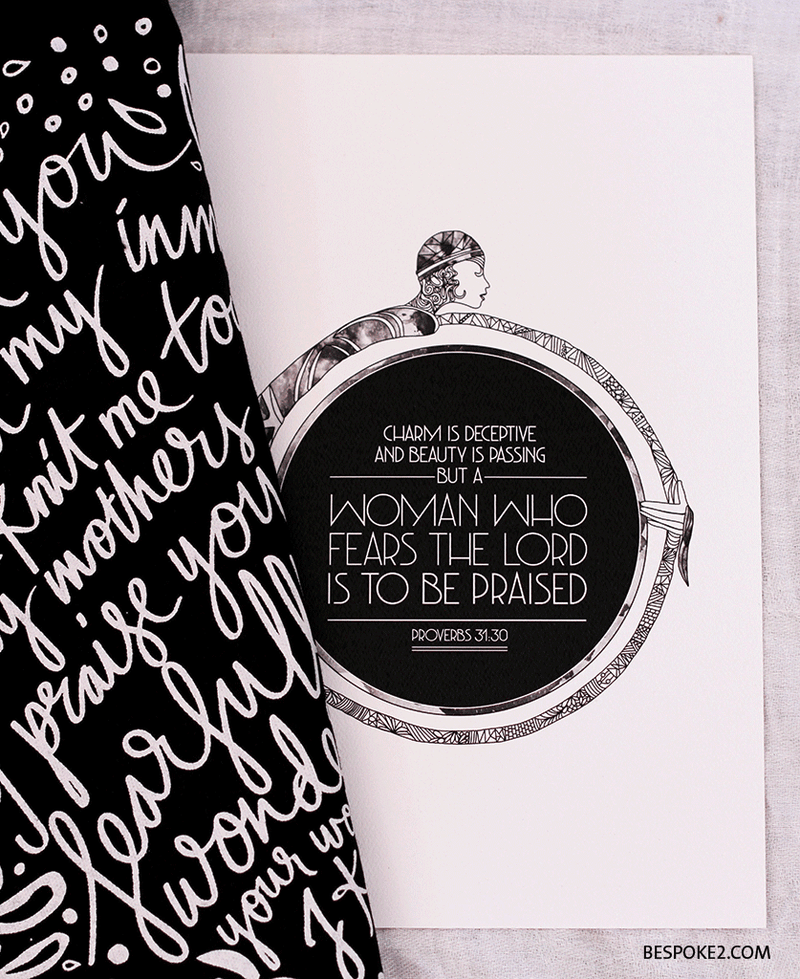 you
inm
my to
knit me
my mothers
praise you
fearfull
wonde
your wo
I k
CHARM IS DECEPTIVE
AND BEAUTY IS PASSING
BUT A
WOMAN WHO
FEARS THE LORD
IS TO BE PRAISED
PROVERBS 31:30
BESPOKE2.COM